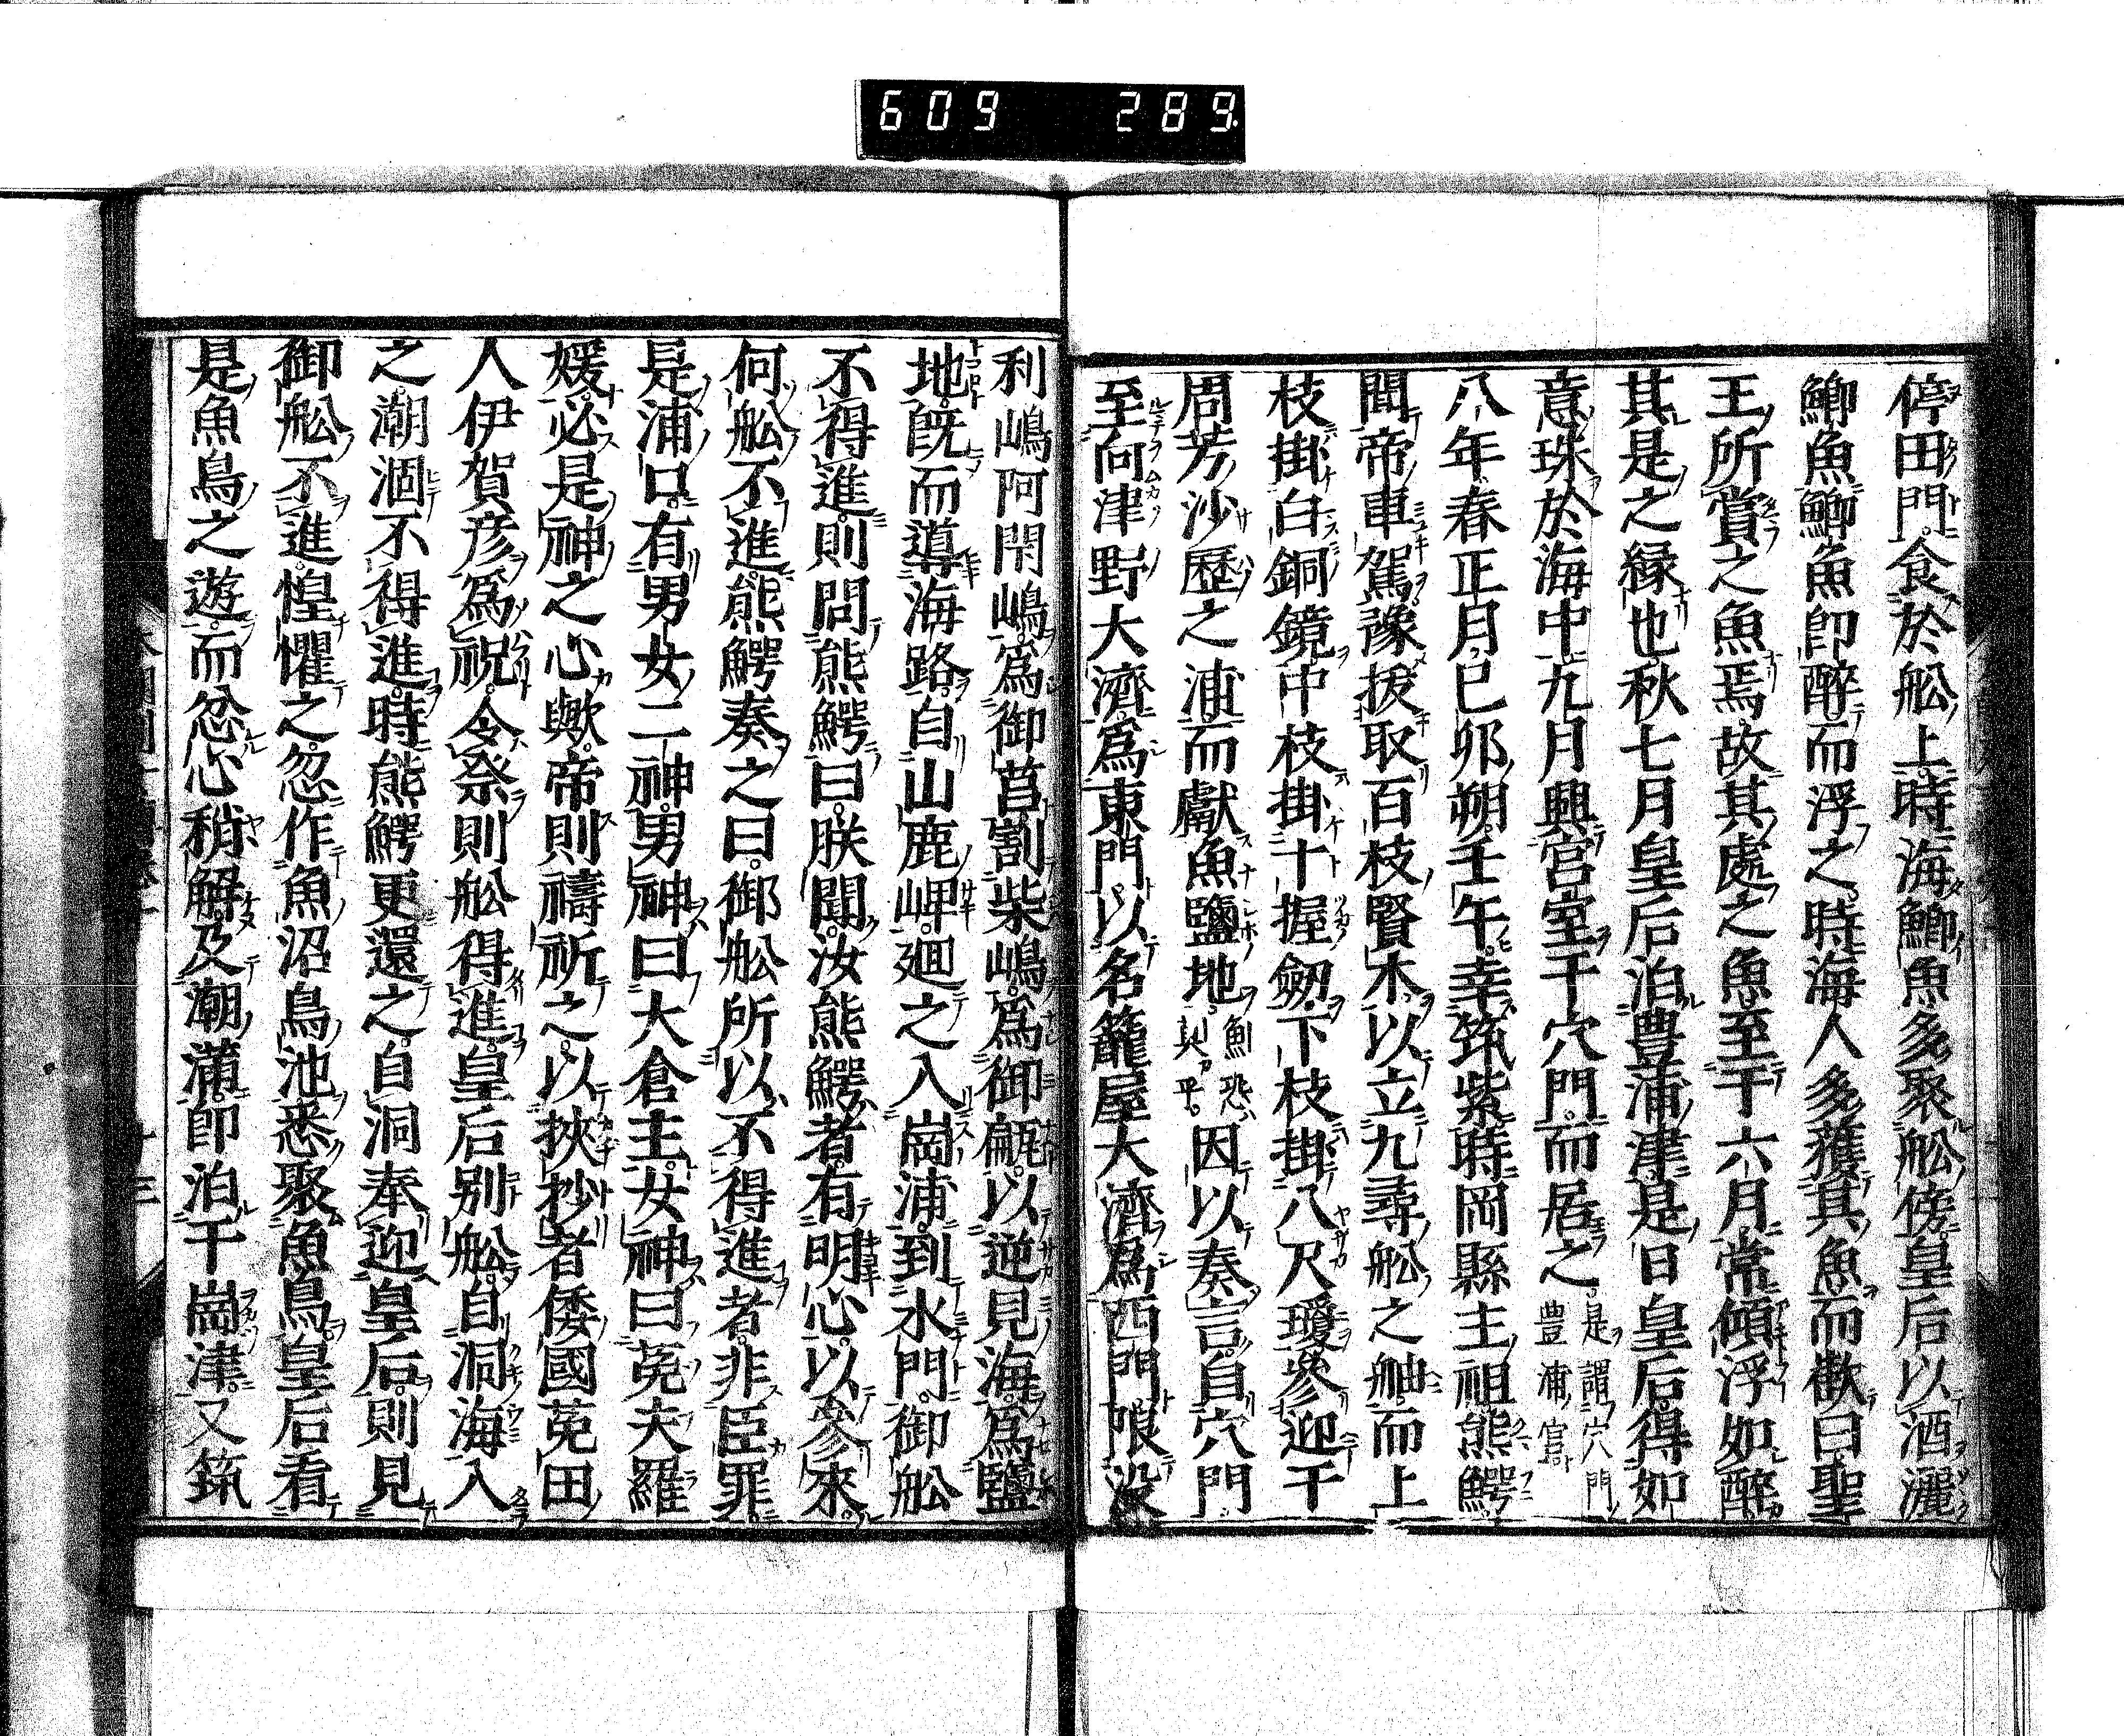 609 289
停田門。食於舩上。時海鯽魚多聚舩傍。皇后以酒灑
鯽魚鯽魚即醉而浮之。時海人多獲其魚而歡曰。聖
王所賞之魚焉。故其處之魚至于六月。常傾浮如醉
其是之縁也。秋七月皇后泊豊浦津。是日皇后得如
意珠於海中。九月興宮室于穴門。而居之。是謂穴門豊浦宮
八年春正月己卯朔。壬午。幸筑紫。時岡縣主祖熊鰐
聞帝車駕。豫抜取百枝賢木。以立九尋舩之舳。而上
枝掛白銅鏡。中枝掛十握劒。下枝掛八尺瓊。參迎于
周芳沙歴之浦。而獻魚鹽地。因以奏言。自穴門
至向津野大濟爲東門。以名籠屋大濟爲西門。限沒
利嶋阿閇嶋。爲御莒。割柴嶋。爲御甂。以逆見海。爲鹽
地。既而導海路。自山鹿岬。廻之入崗浦。到水門。御舩
不得進。則問熊鰐曰。朕聞。汝熊鰐者。有明心。以參來。
何舩不進。熊鰐奏之曰。御舩所以不得進者。非臣罪
是浦口。有男女二神。男神曰大倉主。女神曰菟夫羅
媛。必是神之心歟。帝則禱祈之。以挾抄者倭國菟田
人伊賀彦爲祝。令祭則舩得進。皇后別舩。自洞海入
之。潮涸不得進。時熊鰐更還之。自洞奉迎皇后。則見
御舩不進。惶懼之。忽作魚沼鳥池。悉聚魚鳥。皇后看
是魚鳥之遊。而忿心稍解。及潮滿。即泊于崗津。又筑